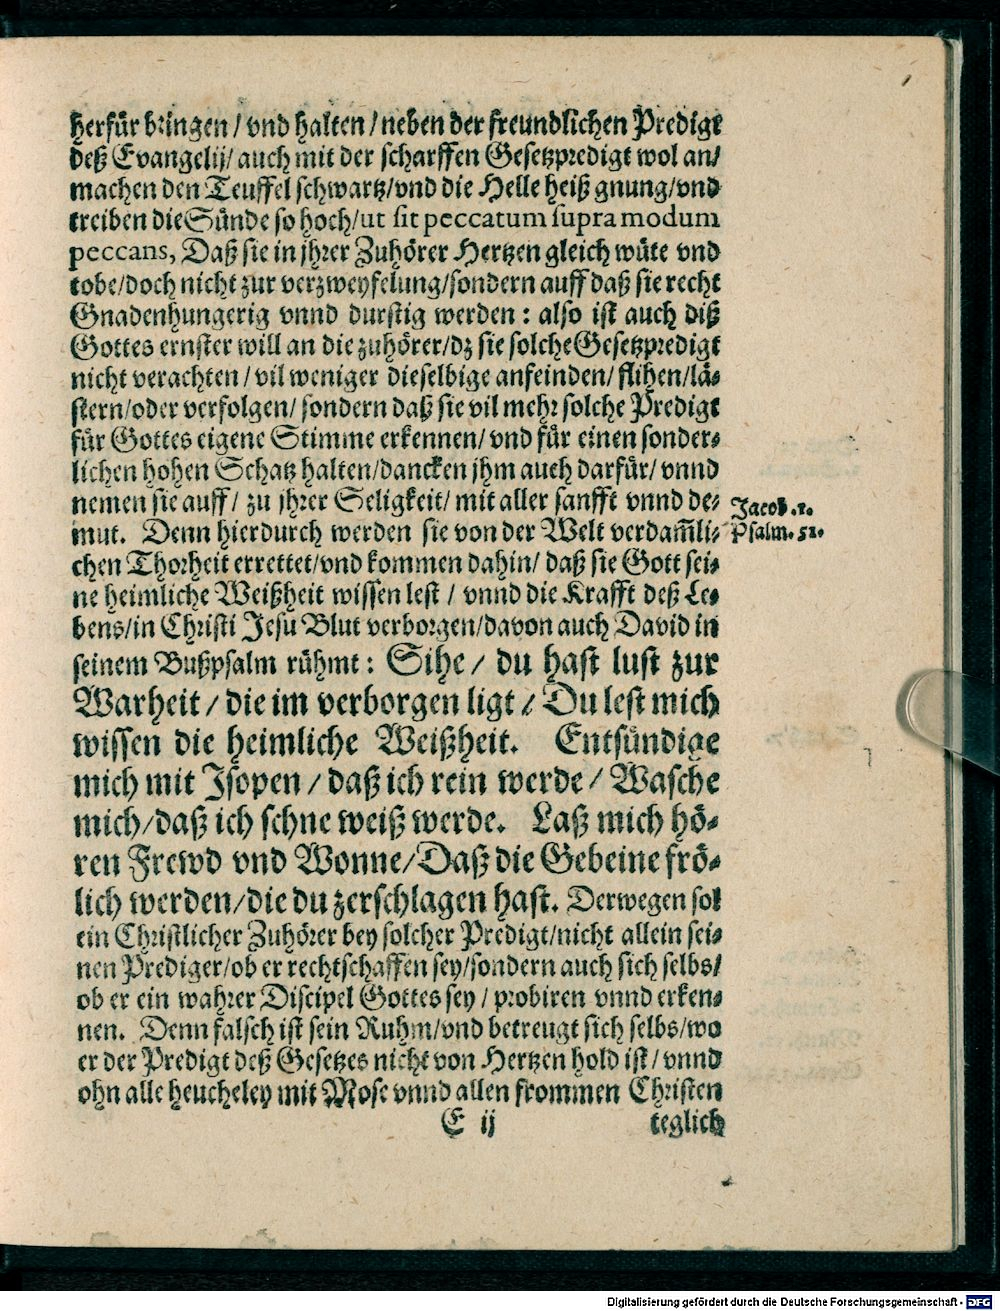 herfür bringen / vnd halten / neben der freundlichen Predigt
deß Evangelij / auch mit der scharffen Gesetzpredigt wol an /
machen den Teuffel schwartz / vnd die Helle heiß gnung / vnd
treiben die Sünde so hoch / ut sit peccatum supra modum
peccans, Daß sie in jhrer Zuhörer Hertzen gleich wüte vnd
tobe / doch nicht zur verzweyfelung / sondern auff daß sie recht
Gnadenhungerig vnnd durstig werden : also ist auch diß
Gottes ernster will an die zuhörer / dz sie solche Gesetzpredigt
nicht verachten / vil weniger dieselbige anfeinden / flihen / lä-
stern / oder verfolgen / sondern daß sie vil mehr solche Predigt
für Gottes eigene Stimme erkennen / vnd für einen sonder-
lichen hohen Schatz halten / dancken jhm auch darfür / vnnd
nemen sie auff / zu jhrer Seligkeit / mit aller sanfft vnnd de-
mut. Denn hierdurch werden sie von der Welt verdam̃li-
chen Thorheit errettet / vnd kommen dahin / daß sie Gott sei-
ne heimliche Weißheit wissen lest / vnnd die Krafft deß Le-
bens / in Christi Jesu Blut verborgen / davon auch David in
seinem Bußpsalm rühmt : Sihe / du hast lust zur
Warheit / die im verborgen ligt / Du lest mich
wissen die heimliche Weißheit. Entsündige
mich mit Isopen / daß ich rein werde / Wasche
mich / daß ich schne weiß werde. Laß mich hö-
ren Frewd vnd Wonne / Daß die Gebeine frö-
lich werden / die du zerschlagen hast. Derwegen sol
ein Christlicher Zuhörer bey solcher Predigt / nicht allein sei-
nen Prediger / ob er rechtschaffen sey / sondern auch sich selbs /
ob er ein wahrer Discipel Gottes sey / probiren vnnd erken-
nen. Denn falsch ist sein Ruhm / vnd betreugt sich selbs / wo
er der Predigt deß Gesetzes nicht von Hertzen hold ist / vnnd
ohn alle heucheley mit Mose vnnd allen frommen Christen
E ij teglich
Jacob. 1.
Psalm. 51.
Digitalisierung gefördert durch die Deutsche Forschungsgemeinschaft - DFG